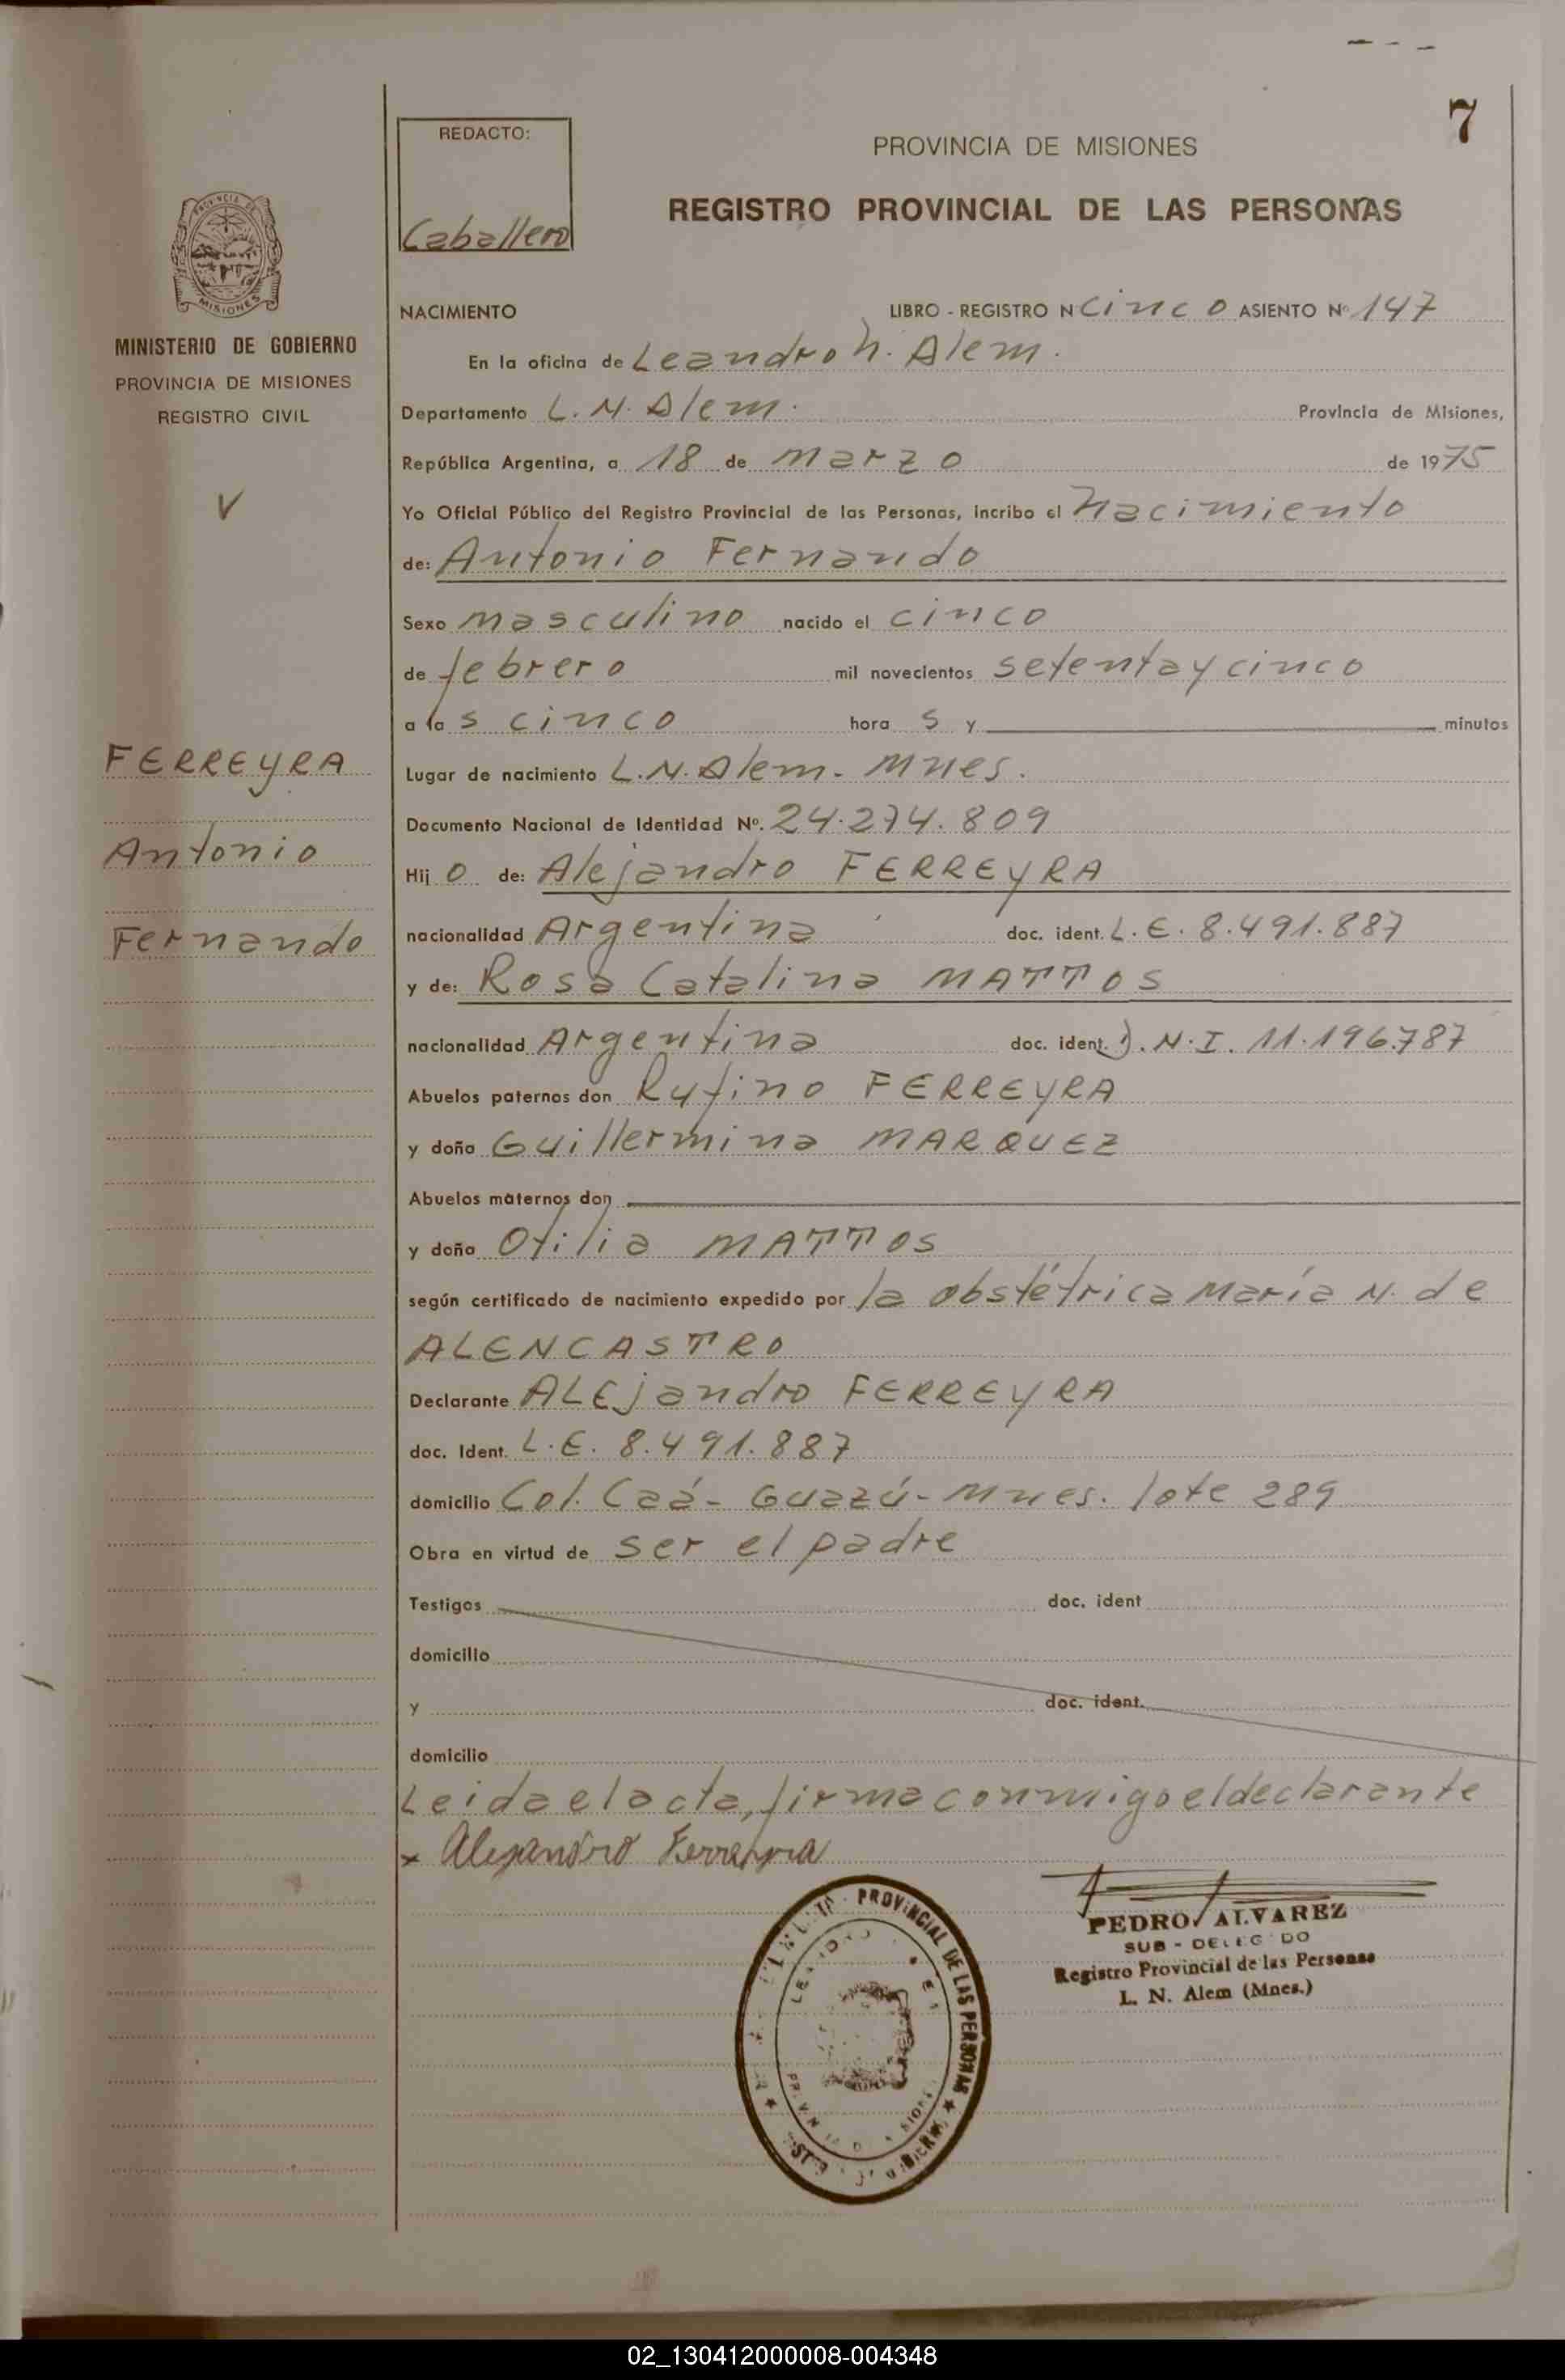 7
REDACTO:
Caballero
PROVINCIA DE MISIONES
REGISTRO PROVINCIAL DE LAS PERSONAS
PROVINCIA DE
MISIONES
MINISTERIO DE GOBIERNO
PROVINCIA DE MISIONES
REGISTRO CIVIL
FERREYRA
Antonio
Fernando
NACIMIENTO LIBRO - REGISTRO N cinco ASIENTO Nº 147
En la oficina de Leandro N. Alem.
Departamento L. N. Alem. Provincia de Misiones,
República Argentina, a 18 de marzo de 1975
Yo Oficial Público del Registro Provincial de las Personas, incribo el Nacimiento
de: Antonio Fernando
Sexo masculino nacido el cinco
de febrero mil novecientos setentaycinco
a las cinco hora s y minutos
Lugar de nacimiento L.N. Alem. Mnes.
Documento Nacional de Identidad Nº. 24.274.809
Hij o de: Alejandro FERREYRA
nacionalidad Argentina doc. ident. L.E. 8.491.887
y de: Rosa Catalina MATTOS
nacionalidad Argentina doc. ident. D.N.I. 11.196.787
Abuelos paternos don Rufino FERREYRA
y doña Guillermina MARQUEZ
Abuelos maternos don
y doña Otilia MATTOS
según certificado de nacimiento expedido por la obstétrica María N. de
ALENCASTRO
Declarante ALEjandro FERREYRA
doc. Ident. L.E. 8.491.887
domicilio Col. Caá-Guazú-Mnes. lote 289
Obra en virtud de ser el padre
Testigos doc. ident
domicilio
y doc. ident.
domicilio
Leida el acta, firma conmigo el declarante
x Alejandro Ferreyra
PROVINCIAL DE LAS PERSONAS
PEDRO ALVAREZ
SUB - DELEGADO
Registro Provincial de las Personas
L. N. Alem (Mnes.)
02_130412000008-004348